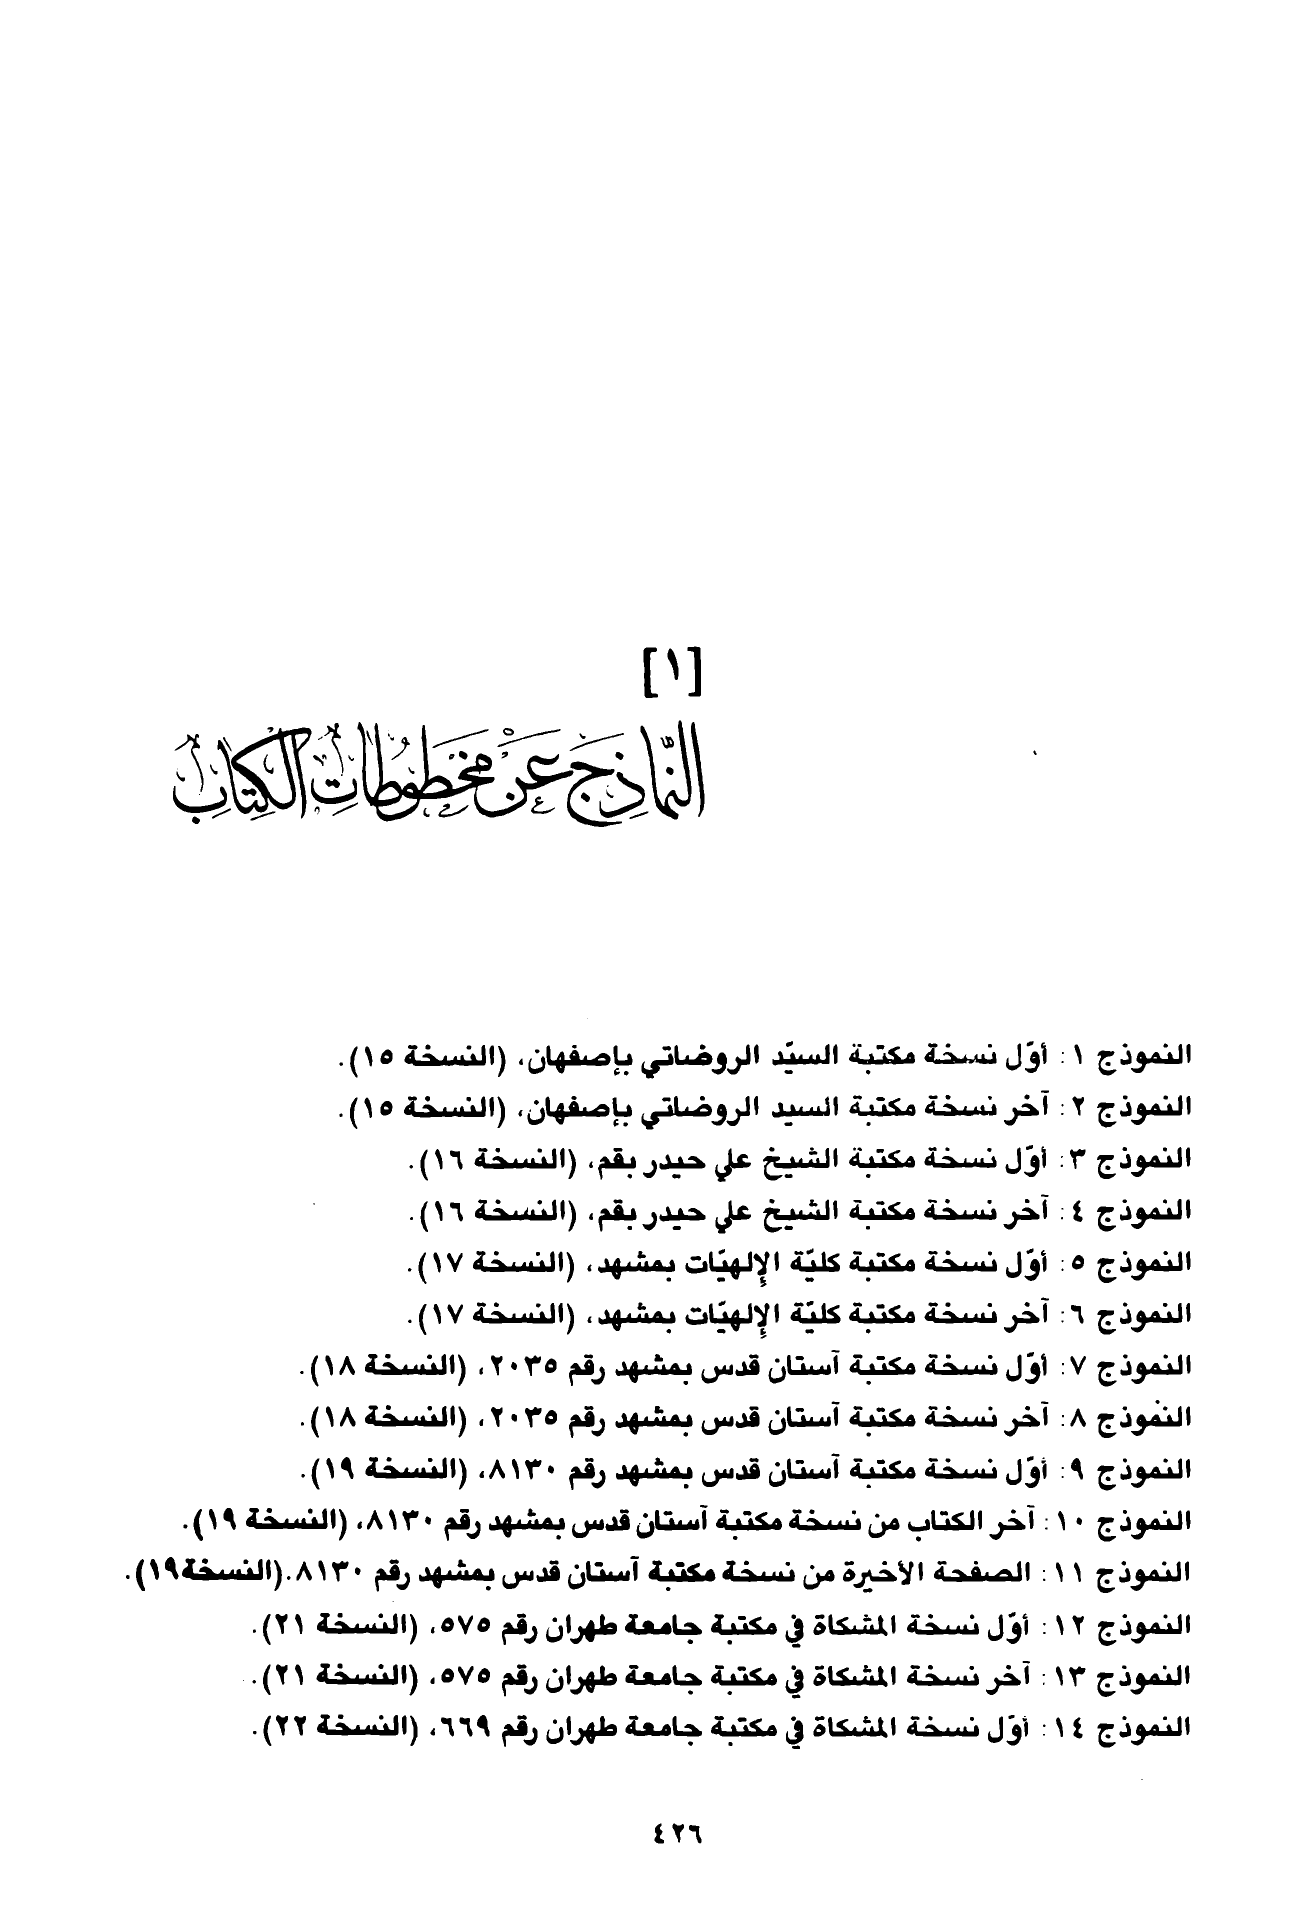 [١]
النَّماذِجَ عَنْ مَخطُوطاتِ الكِتابِ
النموذج ١: أوّل نسخة مكتبة السيّد الروضاتي بإصفهان، (النسخة ١٥).
النموذج ٢: آخر نسخة مكتبة السيد الروضاتي بإصفهان، (النسخة ١٥).
النموذج ٣: أوّل نسخة مكتبة الشيخ علي حيدر بقم، (النسخة ١٦).
النموذج ٤: آخر نسخة مكتبة الشيخ علي حيدر بقم، (النسخة ١٦).
النموذج ٥: أوّل نسخة مكتبة كليّة الإلهيّات بمشهد، (النسخة ١٧).
النموذج ٦: آخر نسخة مكتبة كليّة الإلهيّات بمشهد، (النسخة ١٧).
النموذج ٧: أوّل نسخة مكتبة آستان قدس بمشهد رقم ٢٠٣٥، (النسخة ١٨).
النموذج ٨: آخر نسخة مكتبة آستان قدس بمشهد رقم ٢٠٣٥، (النسخة ١٨).
النموذج ٩: أوّل نسخة مكتبة آستان قدس بمشهد رقم ٨١٣٠، (النسخة ١٩).
النموذج ١٠: آخر الكتاب من نسخة مكتبة آستان قدس بمشهد رقم ٨١٣٠، (النسخة ١٩).
النموذج ١١: الصفحة الأخيرة من نسخة مكتبة آستان قدس بمشهد رقم ٨١٣٠.(النسخة١٩).
النموذج ١٢: أوّل نسخة المشكاة في مكتبة جامعة طهران رقم ٥٧٥، (النسخة ٢١).
النموذج ١٣: آخر نسخة المشكاة في مكتبة جامعة طهران رقم ٥٧٥، (النسخة ٢١).
النموذج ١٤: أوّل نسخة المشكاة في مكتبة جامعة طهران رقم ٦٦٩، (النسخة ٢٢).
٤٢٦